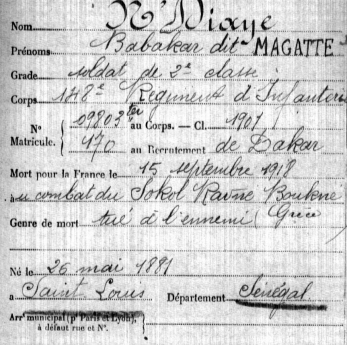 Nom N'Diaye
Prénoms Babakar dit MAGATTE
Grade soldat de 2e classe
Corps 148e Régiment d'Infanterie
N° 09803ter au Corps. — Cl. 1901
Matricule. 170 au Recrutement de Dakar
Mort pour la France le 15 septembre 1918
à au combat du Sokol Ravné Boukné
Genre de mort tué à l'ennemi (Grèce
Né le 26 mai 1881
a Saint Louis Département Sénégal
Arrt municipal (pr Paris et Lyon),
à défaut rue et N°.